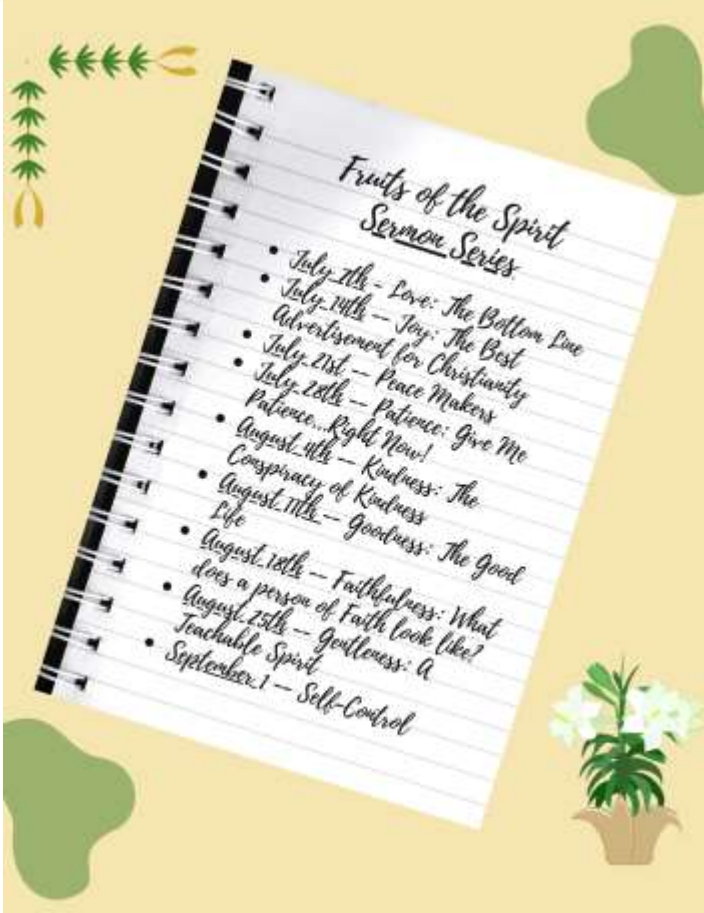 Fruits of the Spirit
Sermon Series
• July 7th - Love: The Bottom Line
• July 14th -- Joy: The Best
Advertisement for Christianity
• July 21st -- Peace Makers
• July 28th -- Patience: Give Me
Patience...Right Now!
• August 4th -- Kindness: The
Conspiracy of Kindness
• August 11th -- Goodness: The Good
Life
• August 18th -- Faithfulness: What
does a person of Faith look like?
• August 25th -- Gentleness: A
Teachable Spirit
• September 1 -- Self-Control